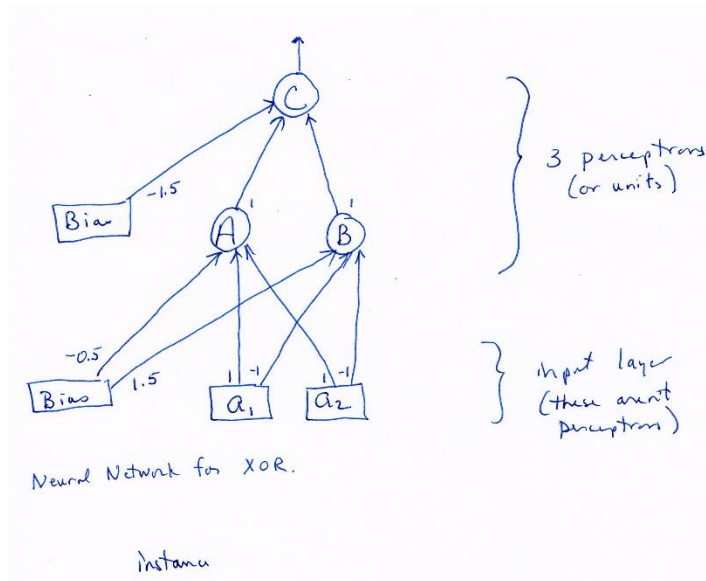 C
3 perceptrons
(or units)
-1.5
Bias
1
1
A
B
-0.5
1.5
1
-1
1
-1
input layer
(these aren't
perceptrons)
Bias
a1
a2
Neural Network for XOR.
instance